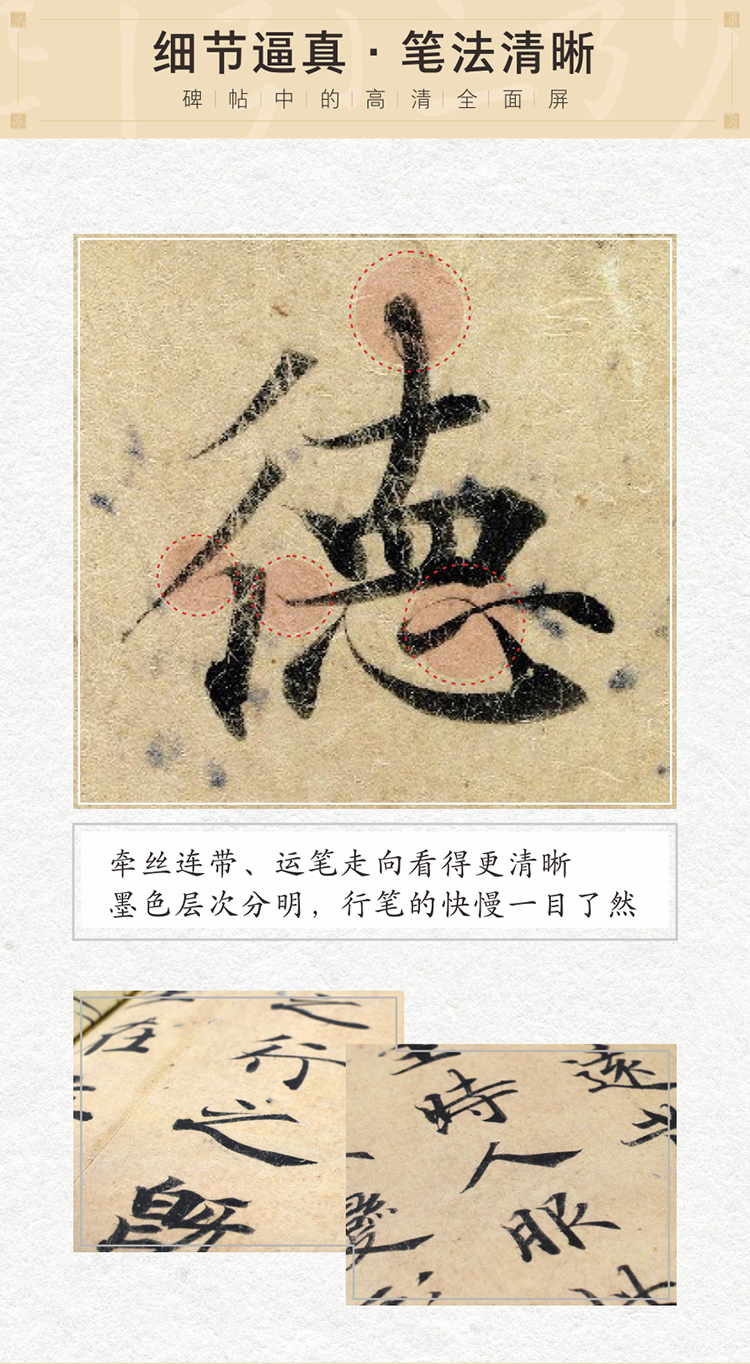 细节逼真·笔法清晰
碑帖中的高清全面屏
德
牵丝连带、运笔走向看得更清晰
墨色层次分明，行笔的快慢一目了然
之
在
行
之
遠
時
人
服